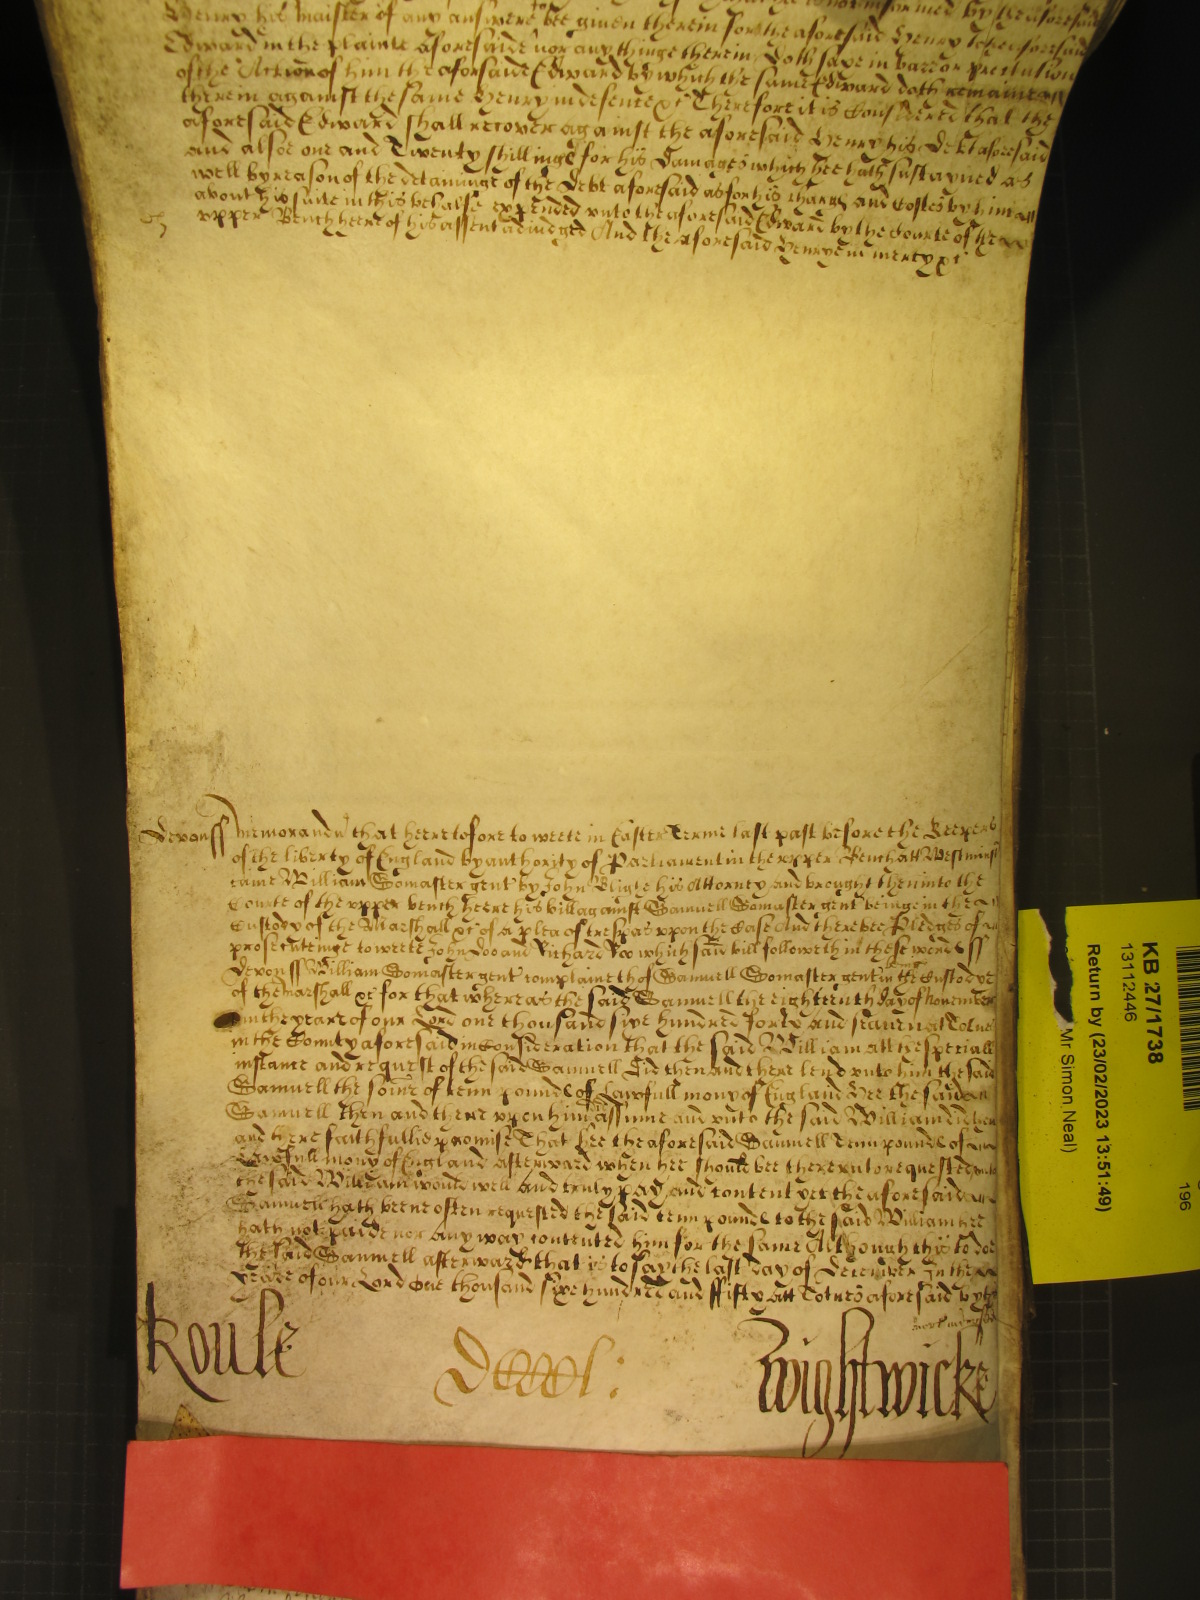 Henry his maister of any answere to bee given therein for the aforesaid Henry to the aforesaid
Edward in the plainte aforesaide nor any thinge therein doth saye in barr or preclusion
of the Action of him the aforesaid Edward by which the same Edward doth remaine
therein against the same Henry in defence &c Therefore it is Considered that the
aforesaid Edward shall recover against the aforesaid Henry his Debt aforesaid
and alsoe one and Twenty shillinges for his Damages which hee hath sustayned as
well by reason of the detaininge of the Debt aforesaid as for his charges and Costes by him
about his suite in this behalfe expended unto the aforesaid Edward by the Courte of the
upper Bench heere of his assent adiudged And the aforesaid Henrye in mercy &c
Devon ss Memorandum that heeretofore to weete in Easter Terme last past before the Keepers
of the liberty of England by authority of Parliament in the upper Bench att Westminst
came William Somaster gent by John Bligh his Attorney and brought then into the
Courte of the upper bench heere his bill against Samuell Somaster gent beinge in the
Custody of the Marshall &c of a plea of trespas upon the Case And there bee Pledges of
prosecutinge to weete John Doo and Richard Roo which said bill followeth in these wordes ss
Devon ss William Somaster gent complaineth of Samuell Somaster gent being in the Custodye
of the Marshall &c for that whereas the said Samuell the eighteenth day of November
in the yeare of our Lord one thousand sixe hundred forty and seaven at Totnes
in the County aforesaid in Consideration that the said William att the speciall
instance and request of the said Samuell Did then and there lend unto him the said
Samuell the some of tenn poundes of Lawfull mony of England Hee the said
Samuell then and there upon him assume and unto the said William did then
and there faithfullie promise That hee the aforesaid Samuell Tenn poundes of
Lawfull mony of England afterward when hee should bee thereunto requested
the said William would well and truly pay and content yet the aforesaid
Samuell hath beene often requested the said tenn poundes to the said William hee
hath not paide nor any way contented him for the same Although this to doe
the said Samuell afterward that is to say the last day of December in the
yeare of our Lord One thousand sixe hundred and ffifty att Totnes aforesaid by the
Roule
Wightwicke
KB 27/1738
13112446
Return by (23/02/2023 13:51:49)
Mr Simon Neal)
196